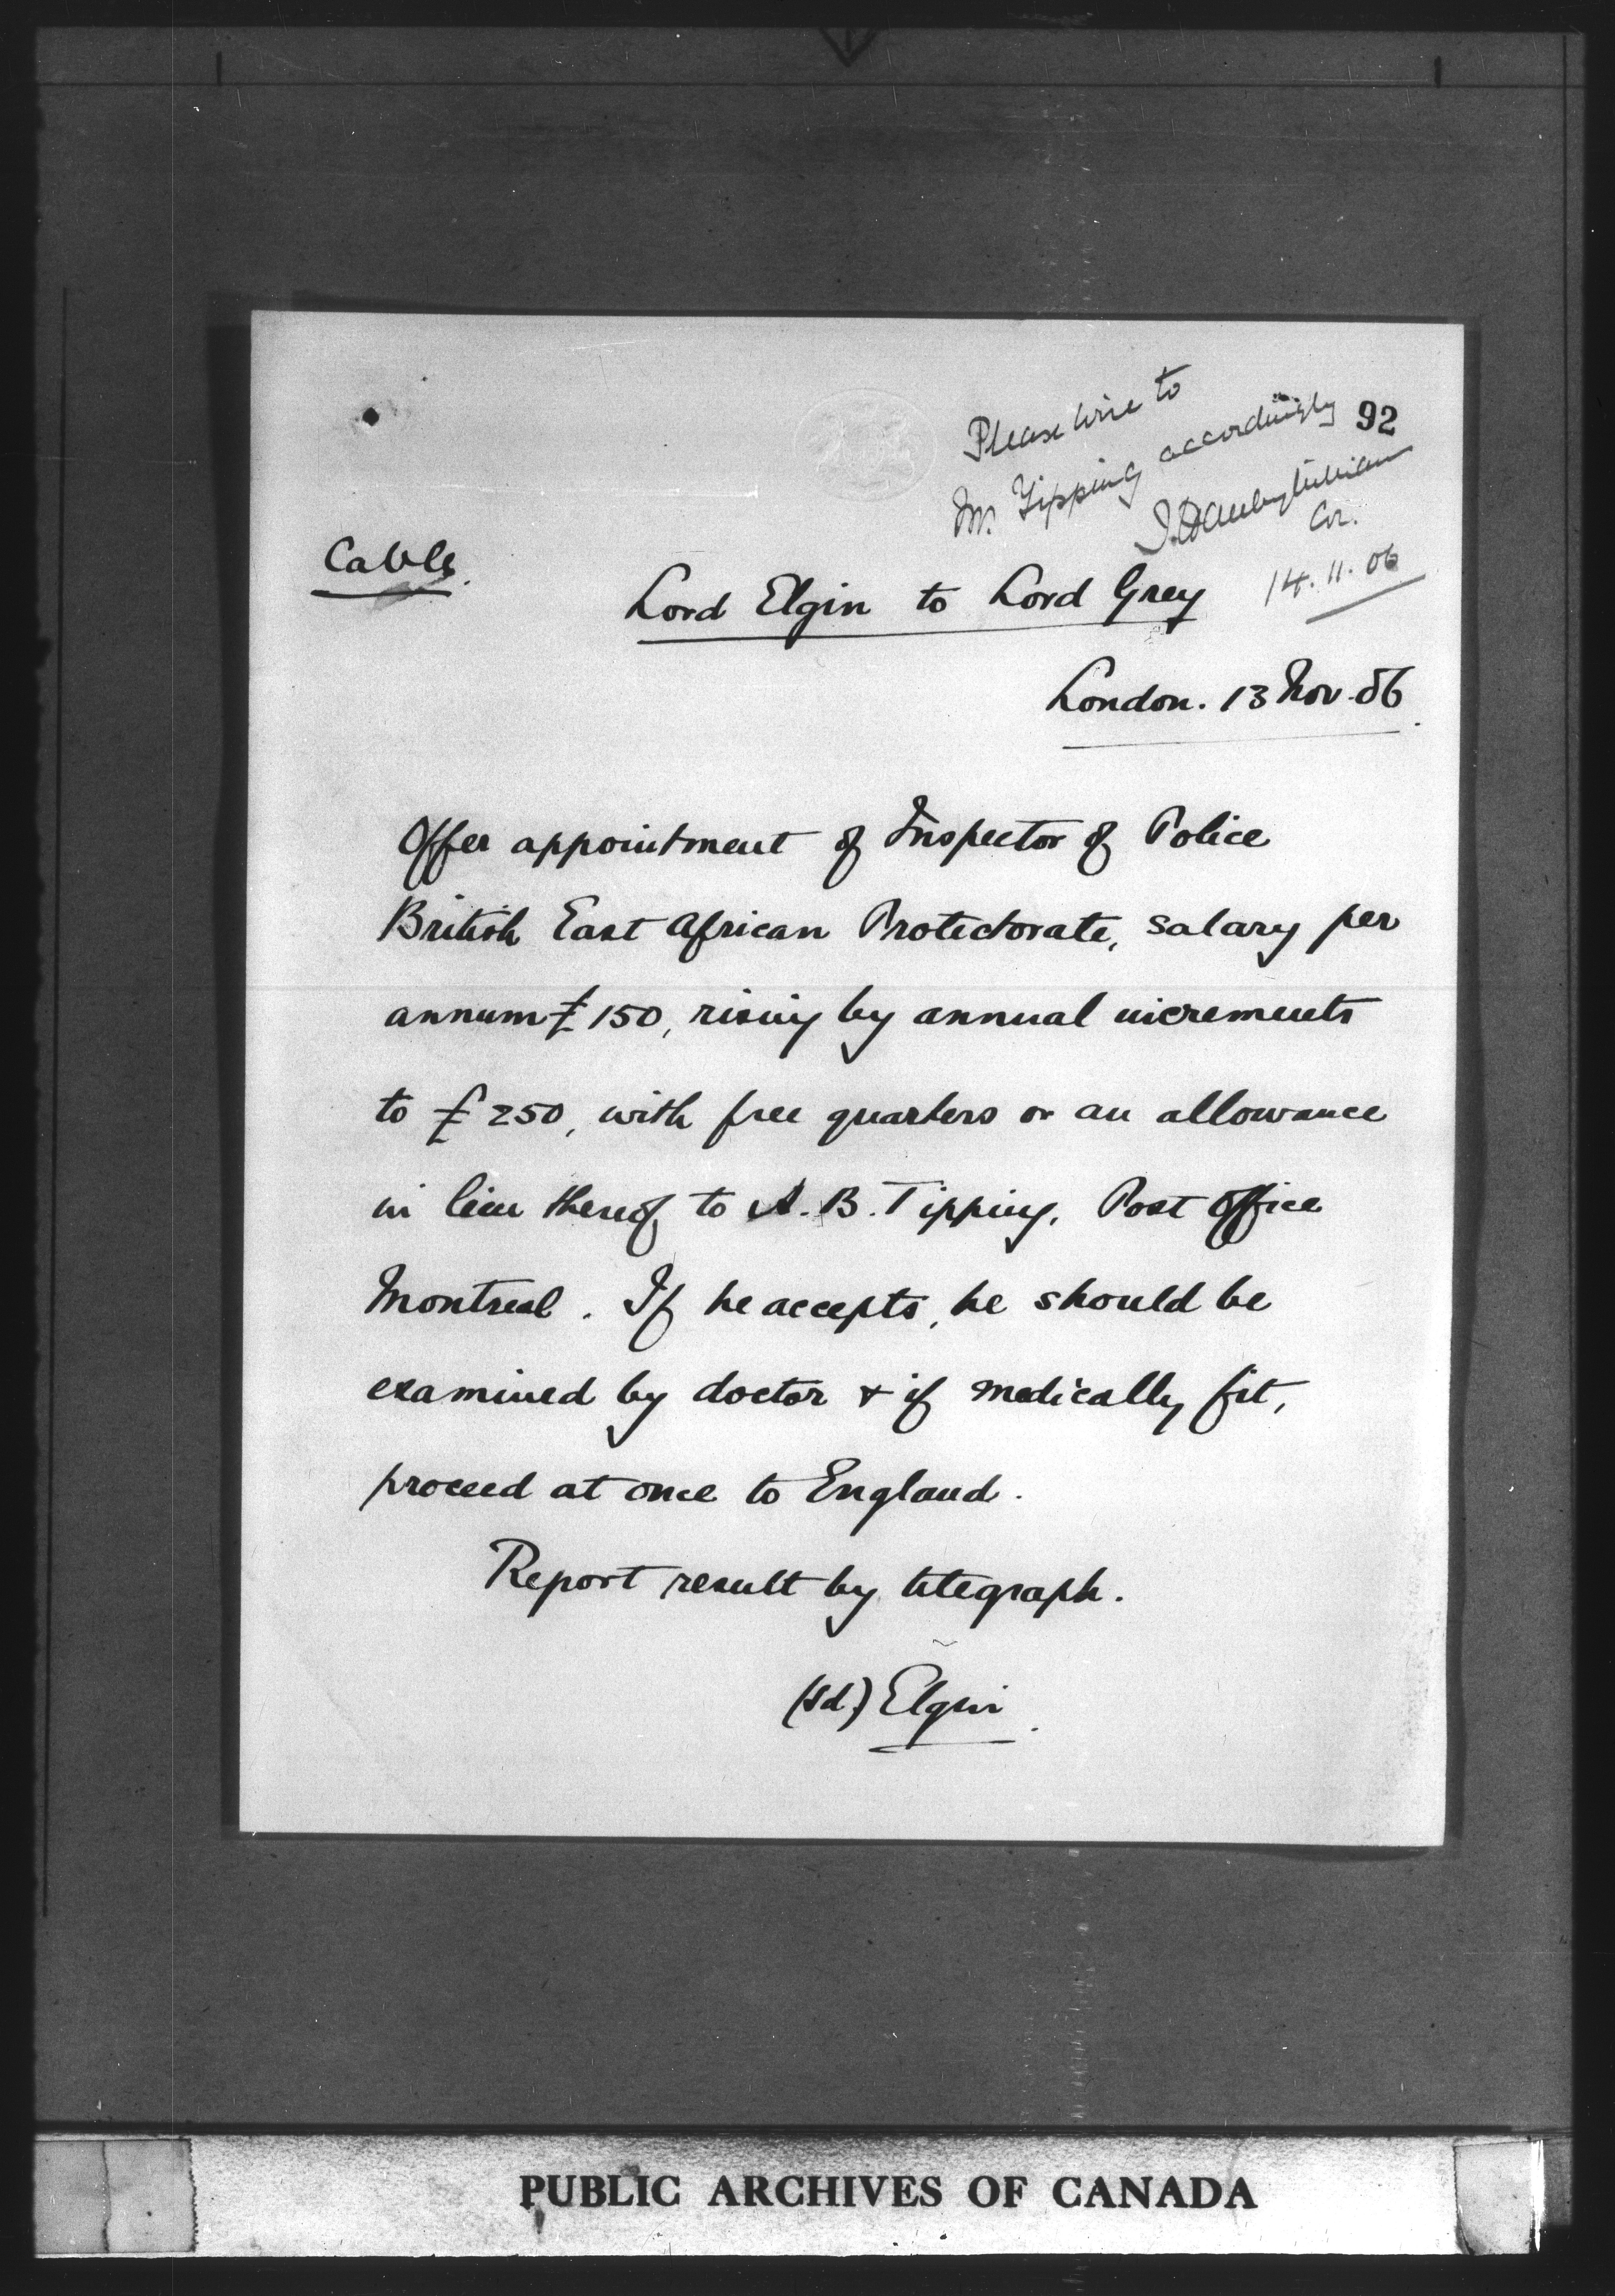 Please wire to
Mr. Tipping accordingly
92
J. Hanbury Williams
Col.
14.11.06
Cable.
Lord Elgin to Lord Grey
London. 13 Nov. 06.
Offer appointment of Inspector of Police
British East African Protectorate, salary per
annum £150, rising by annual increments
to £250, with free quarters or an allowance
in lieu thereof to A.B. Tipping, Post Office
Montreal. If he accepts, he should be
examined by doctor & if medically fit,
proceed at once to England.
Report result by telegraph.
(sd.) Elgin.
PUBLIC ARCHIVES OF CANADA